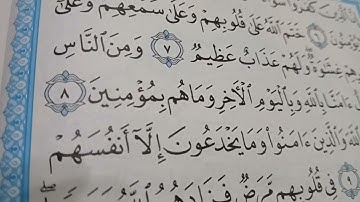 كَفَرُوا
خَتَمَ ٱللَّهُ عَلَىٰ قُلُوبِهِمْ وَعَلَىٰ سَمْعِهِمْ وَعَلَىٰ
غِشَٰوَةٌ وَلَهُمْ عَذَابٌ عَظِيمٌ ٧ وَمِنَ ٱلنَّاسِ
ءَامَنَّا بِٱللَّهِ وَبِٱلْيَوْمِ ٱلْءَاخِرِ وَمَا هُم بِمُؤْمِنِينَ ٨
ٱللَّهَ وَٱلَّذِينَ ءَامَنُوا۟ وَمَا يَخْدَعُونَ إِلَّآ أَنفُسَهُمْ
فِى قُلُوبِهِم مَّرَضٌ فَزَادَهُمُ ٱللَّهُ